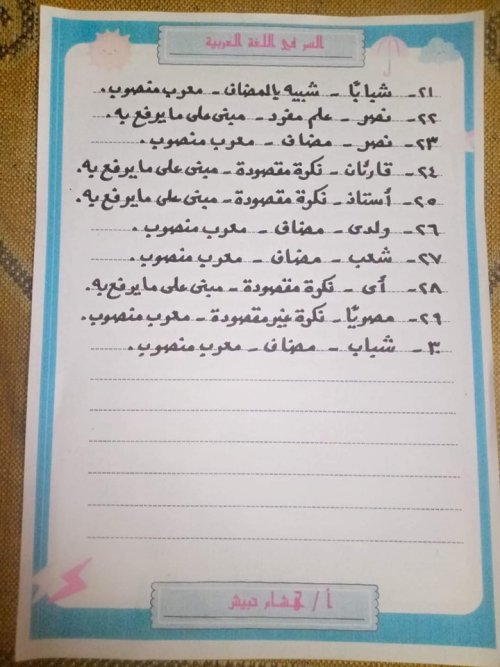 السر في اللغة العربية
٢١- شبابًا - شبيه بالمضاف - معرب منصوب.
٢٢- نصر - علم مفرد - مبنى على ما يرفع به.
٢٣- نصر - مضاف - معرب منصوب.
٢٤- قارئان - نكرة مقصودة - مبنى على ما يرفع به.
٢٥- أستاذ - نكرة مقصودة - مبنى على ما يرفع به.
٢٦- ولدى - مضاف - معرب منصوب.
٢٧- شعب - مضاف - معرب منصوب.
٢٨- أى - نكرة مقصودة - مبنى على ما يرفع به.
٢٩- مصريًا - نكرة غير مقصودة - معرب منصوب.
٣٠- شباب - مضاف - معرب منصوب.
أ / هشام حبيش